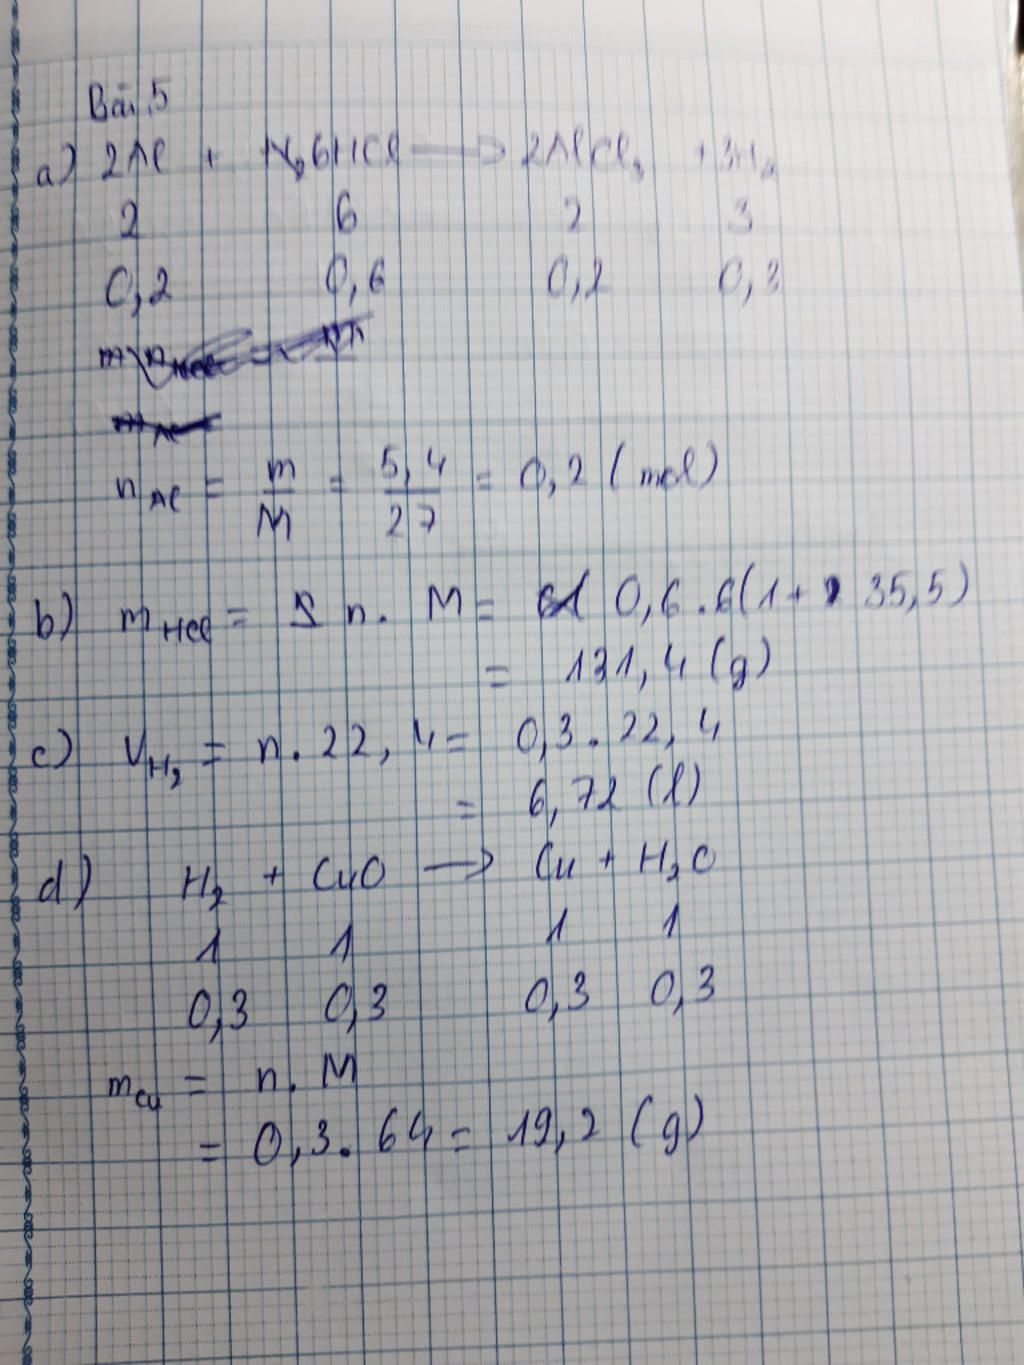 Bài 5
a) 2Al + 6HCl → 2AlCl₃ + 3H₂
2 6 2 3
0,2 0,6 0,2 0,3
n Al = m/M = 5,4/27 = 0,2 (mol)
b) m HCl = n. M = 0,6.6(1+ 35,5)
= 131,4 (g)
c) V H₂ = n.22,4 = 0,3.22,4
= 6,72 (l)
d) H₂ + CuO → Cu + H₂O
1 1 1 1
0,3 0,3 0,3 0,3
m Cu = n. M
= 0,3.64 = 19,2 (g)